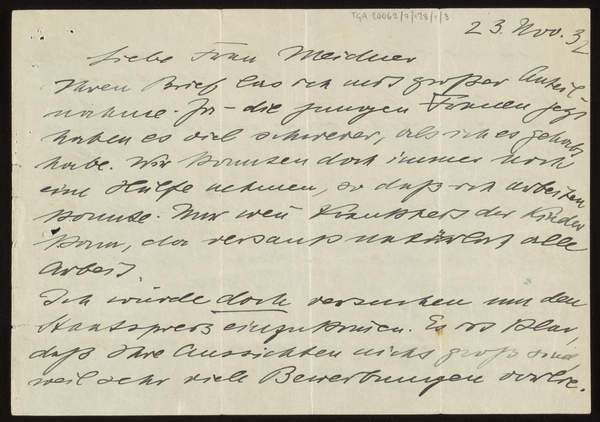 TGA 20062/7/178/1/3
23. Nov. 32
Liebe Frau Meidner
Ihren Brief las ich mit großer Anteil-
nahme. Ja - die jungen Frauen jetzt
haben es viel schwerer, als ich es gehabt
habe. Wir konnten doch immer noch
eine Hülfe nehmen, so daß ich arbeiten
konnte. Nur wenn Krankheit der Kinder
kam, da versank natürlich alle
Arbeit.
Ich würde doch versuchen um den
Staatspreis einzukommen. Es ist klar,
daß Ihre Aussichten nicht groß sind,
weil sehr viele Bewerbungen vorlie-